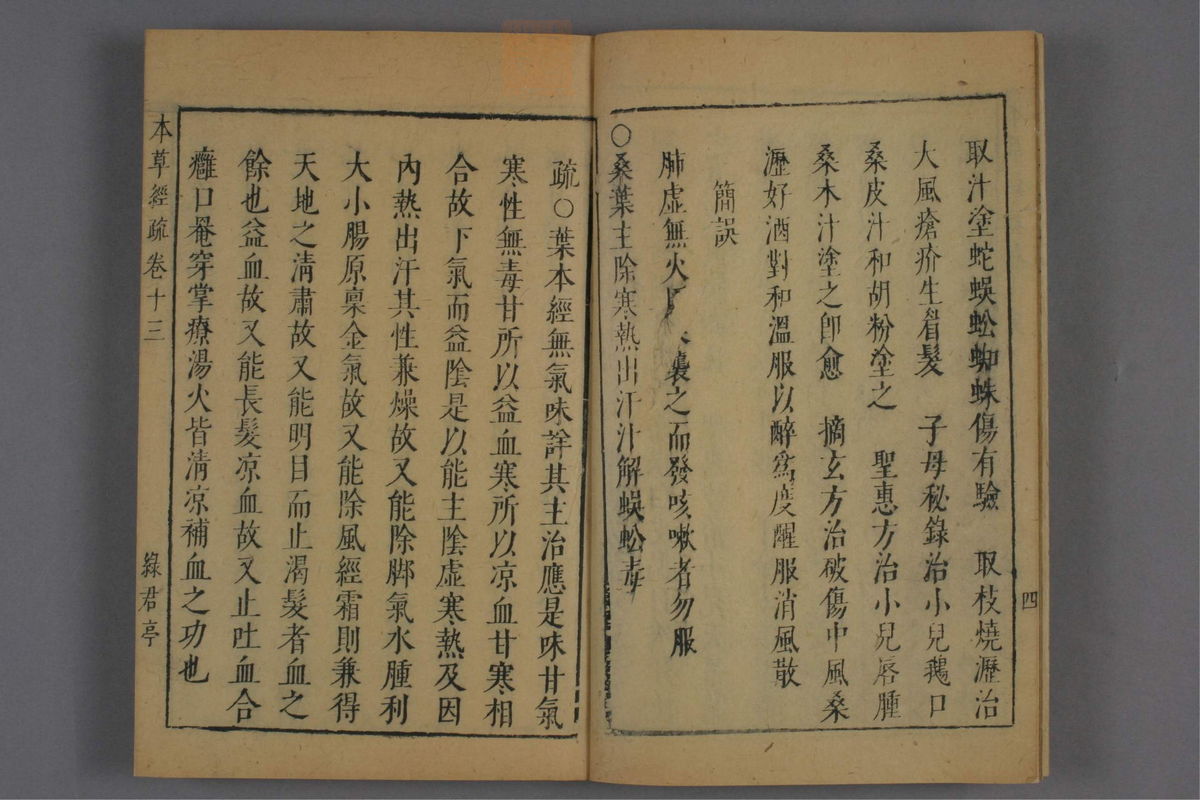 四
取汁塗蛇蜈蚣蜘蛛傷有驗　取枝燒瀝治
大風瘡疥生眉髮　子母秘錄治小兒鵝口
桑皮汁和胡粉塗之　聖惠方治小兒唇腫
桑木汁塗之卽愈　摘玄方治破傷中風桑
瀝好酒對和溫服以醉爲度醒服消風散
簡誤
肺虛無火襲之而發咳嗽者勿服
○桑葉主除寒熱出汗汁解蜈蚣毒
疏○葉本經無氣味詳其主治應是味甘氣
寒性無毒甘所以益血寒所以凉血甘寒相
合故下氣而益陰是以能主陰虛寒熱及因
內熱出汗其性兼燥故又能除脚氣水腫利
大小腸原稟金氣故又能除風經霜則兼得
天地之淸肅故又能明目而止渴髮者血之
餘也益血故又能長髮凉血故又止吐血合
癰口罨穿掌療湯火皆淸凉補血之功也
本草經疏卷十三
綠君亭